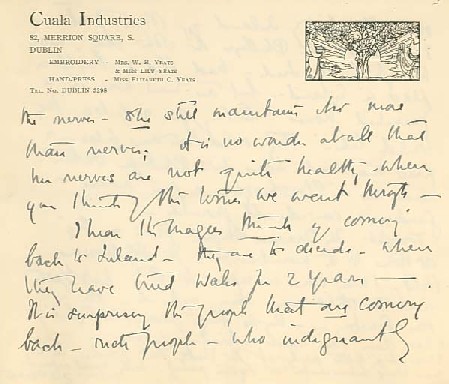 Cuala Industries
82, MERRION SQUARE, S.
DUBLIN
EMBROIDERY - MRS. W. B. YEATS
& MISS LILY YEATS
HAND-PRESS - MISS ELIZABETH C. YEATS
TEL. No. DUBLIN
the nerves - she still maintains its no more
than nerves. it is no wonder at all that
her nerves are not quite healthy when
you think of the times we went through -
I hear the Magees think of coming
back to Ireland - they are to decide - when
they have tried Wales for 2 years -
It is surprising the people that are coming
back - rich people - who indignantly